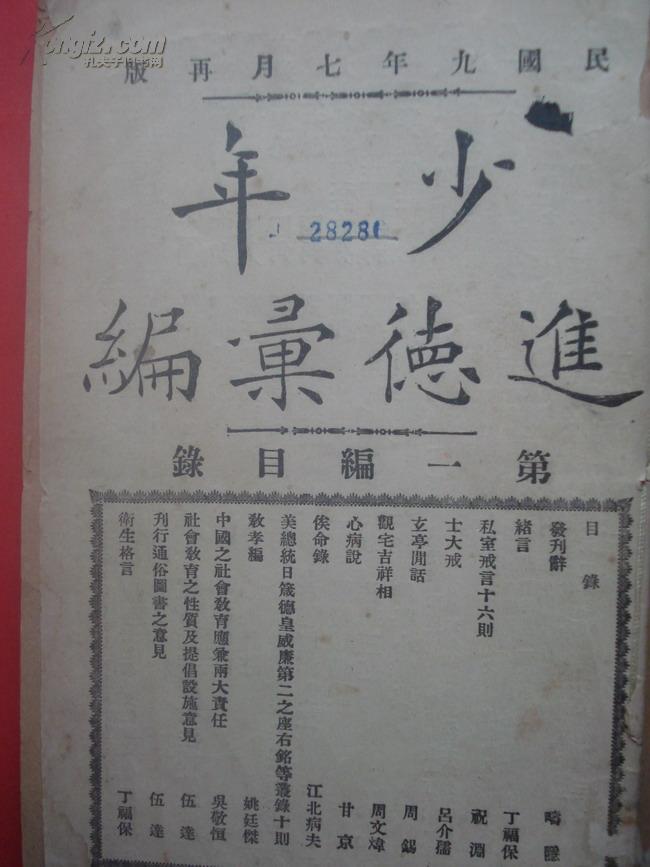 民國九年七月再版
少年
進德彙編
28280
第一編目錄
目錄
發刊辭 疇隱
緒言 丁福保
私室戒言十六則 祝淵
士大戒 呂介孺
玄亭閒話 周錫
觀宅吉祥相 周文煒
心病說 甘京
俟命錄 江北病夫
美總統日箴德皇威廉第二之座右銘等叢錄十則
教孝編 姚廷傑
中國之社會教育應兼兩大責任 吳敬恒
社會教育之性質及提倡設施意見 伍達
刊行通俗圖書之意見 伍達
衛生格言 丁福保
kongfz.com
孔夫子旧书网